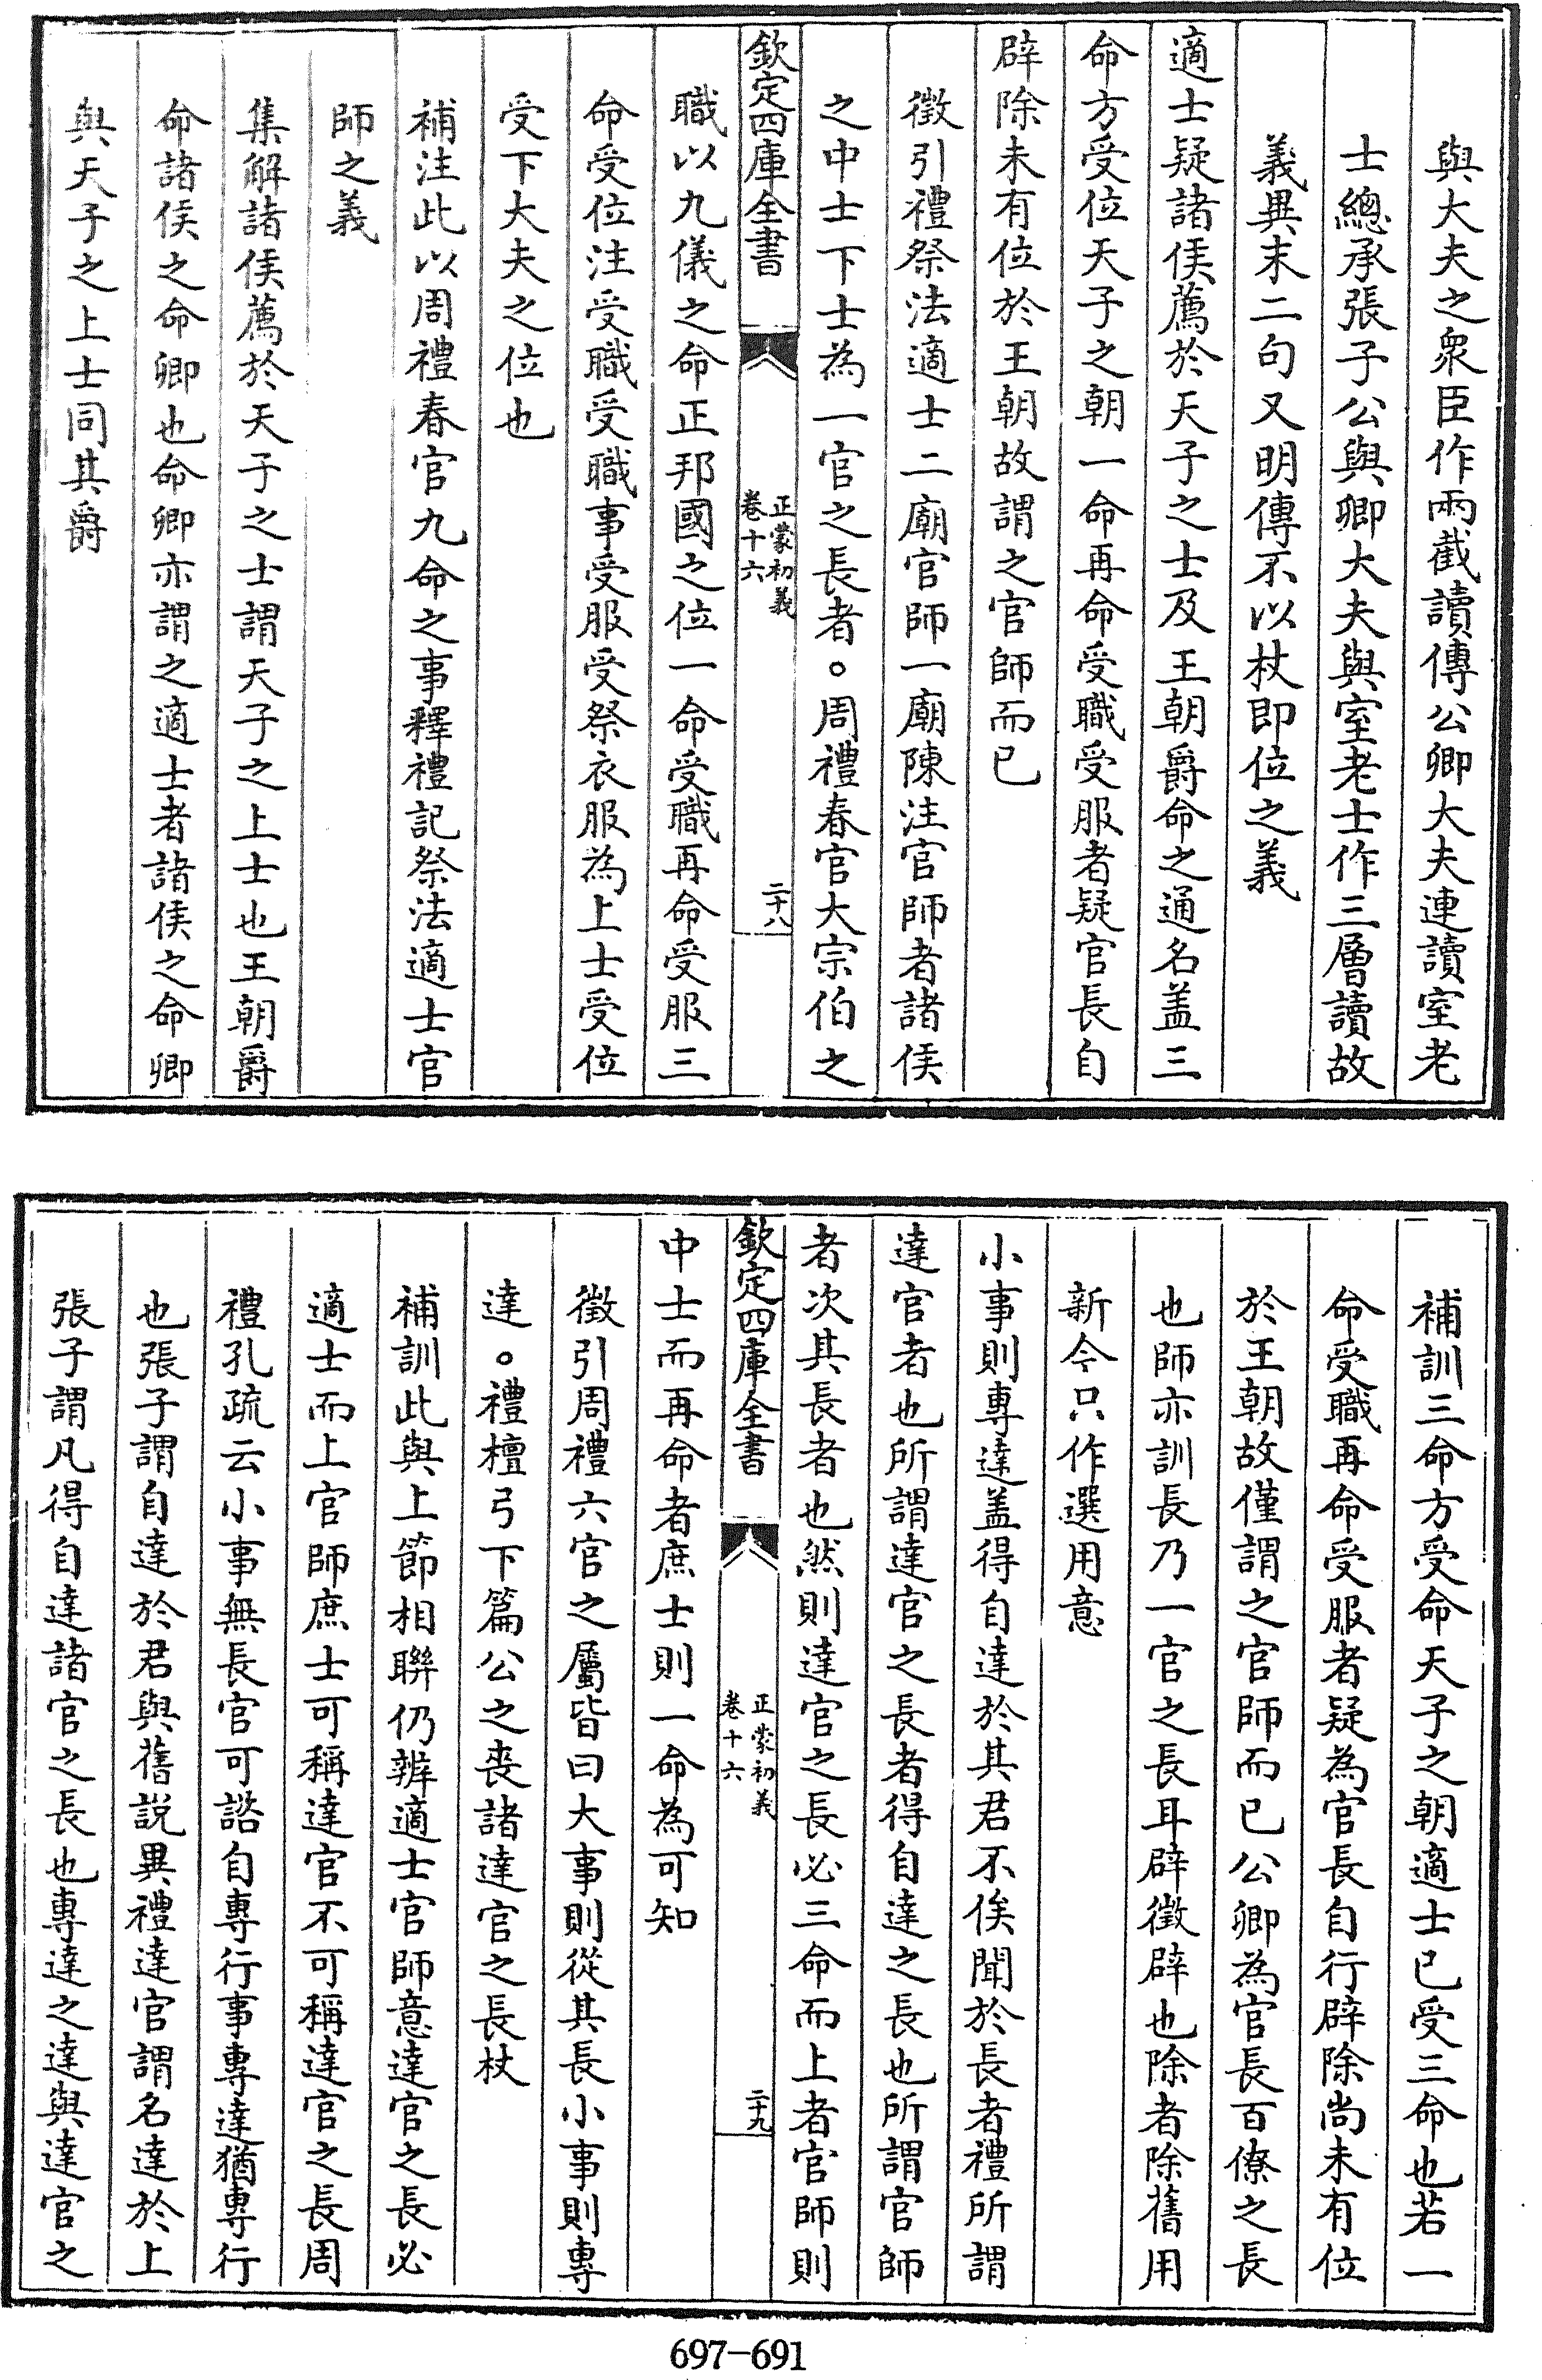 與大夫之衆臣作兩截讀傳公卿大夫連讀室老
士總承張子公與卿大夫與室老士作三層讀故
義異末二句又明傳不以杖即位之義
適士疑諸侯薦於天子之士及王朝爵命之通名盖三
命方受位天子之朝一命再命受職受服者疑官長自
辟除未有位於王朝故謂之官師而已
徵引禮祭法適士二廟官師一廟陳注官師者諸侯
之中士下士為一官之長者。周禮春官大宗伯之
欽定四庫全書
正蒙初義
卷十六
二十八
職以九儀之命正邦國之位一命受職再命受服三
命受位注受職受職事受服受祭衣服為上士受位
受下大夫之位也
補注此以周禮春官九命之事釋禮記祭法適士官
師之義
集解諸侯薦於天子之士謂天子之上士也王朝爵
命諸侯之命卿也命卿亦謂之適士者諸侯之命卿
與天子之上士同其爵
補訓三命方受命天子之朝適士已受三命也若一
命受職再命受服者疑為官長自行辟除尚未有位
於王朝故僅謂之官師而已公卿為官長百僚之長
也師亦訓長乃一官之長耳辟徵辟也除者除舊用
新令只作選用意
小事則專達盖得自達於其君不俟聞於長者禮所謂
達官者也所謂達官之長者得自達之長也所謂官師
者次其長者也然則達官之長必三命而上者官師則
欽定四庫全書
正蒙初義
卷十六
二十九
中士而再命者庶士則一命為可知
徵引周禮六官之屬皆曰大事則從其長小事則專
達。禮檀弓下篇公之喪諸達官之長杖
補訓此與上節相聯仍辨適士官師意達官之長必
適士而上官師庶士可稱達官不可稱達官之長周
禮孔疏云小事無長官可諮自專行事專達猶專行
也張子謂自達於君與舊說異禮達官謂名達於上
張子謂凡得自達諸官之長也專達之達與達官之
697-691